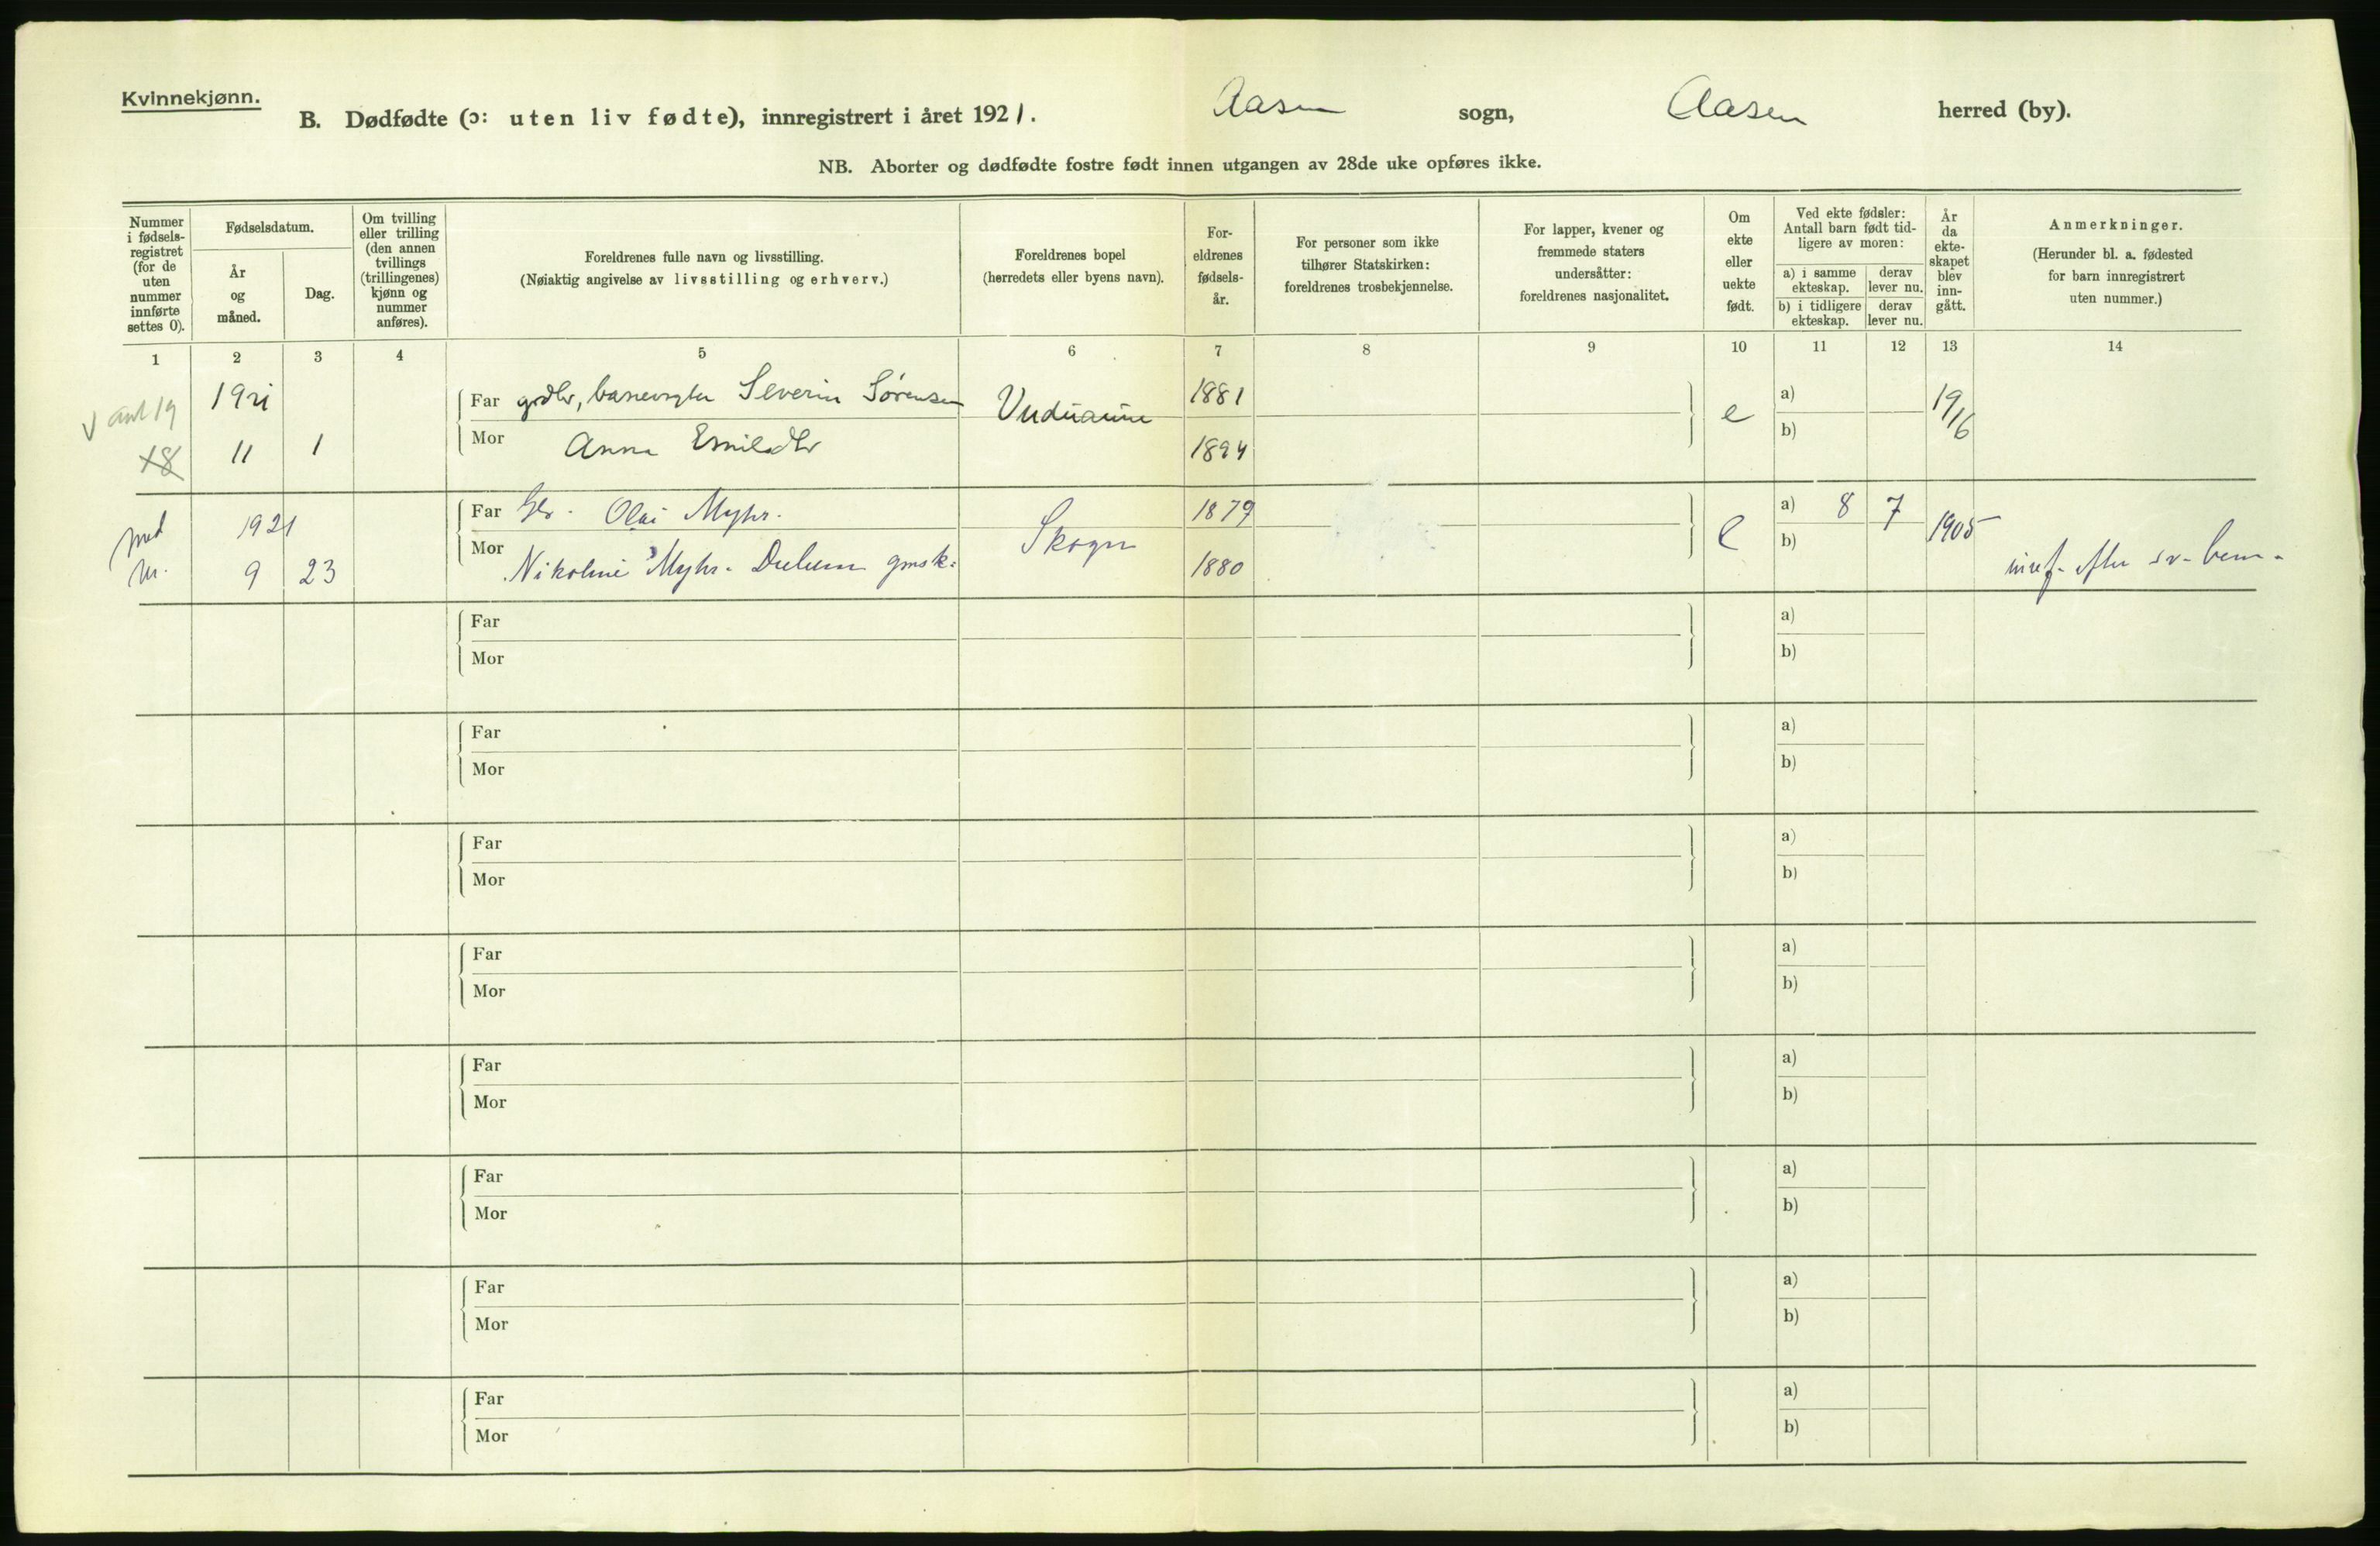 Kvinnekjønn.
B. Dødfødte (ɔ: uten liv fødte), innregistrert i året 1921. Aasen sogn, Aasen herred (by).
NB. Aborter og dødfødte fostre født innen utgangen av 28de uke opføres ikke.
Nummer i fødsels-registret (for de uten nummer innførte settes 0).
Fødselsdatum.
År og måned.
Dag.
Om tvilling eller trilling (den annen tvillings (trillingenes) kjønn og nummer anføres).
Foreldrenes fulle navn og livsstilling.
(Nøiaktig angivelse av livsstilling og erhverv.)
Foreldrenes bopel
(herredets eller byens navn).
For-eldrenes fødsels-år.
For personer som ikke tilhører Statskirken: foreldrenes trosbekjennelse.
For lapper, kvener og fremmede staters undersåtter: foreldrenes nasjonalitet.
Om ekte eller uekte født.
Ved ekte fødsler: Antall barn født tid-ligere av moren:
a) i samme ekteskap.
derav lever nu.
b) i tidligere ekteskap.
derav lever nu.
År da ekte-skapet blev inn-gått.
Anmerkninger.
(Herunder bl. a. fødested for barn innregistrert uten nummer.)
1 2 3 4 5 6 7 8 9 10 11 12 13 14
1921 Far Severin Sørensen 1881 e a) 19/16
18 11 1 Mor Anna 1894 b)
1921 Far Olai Myhr. Skogn 1879 e a) 8 7 1905
9 23 Mor Nikoline Myhr. 1880 b)
Far a)
Mor b)
Far a)
Mor b)
Far a)
Mor b)
Far a)
Mor b)
Far a)
Mor b)
Far a)
Mor b)
Far a)
Mor b)
Far a)
Mor b)